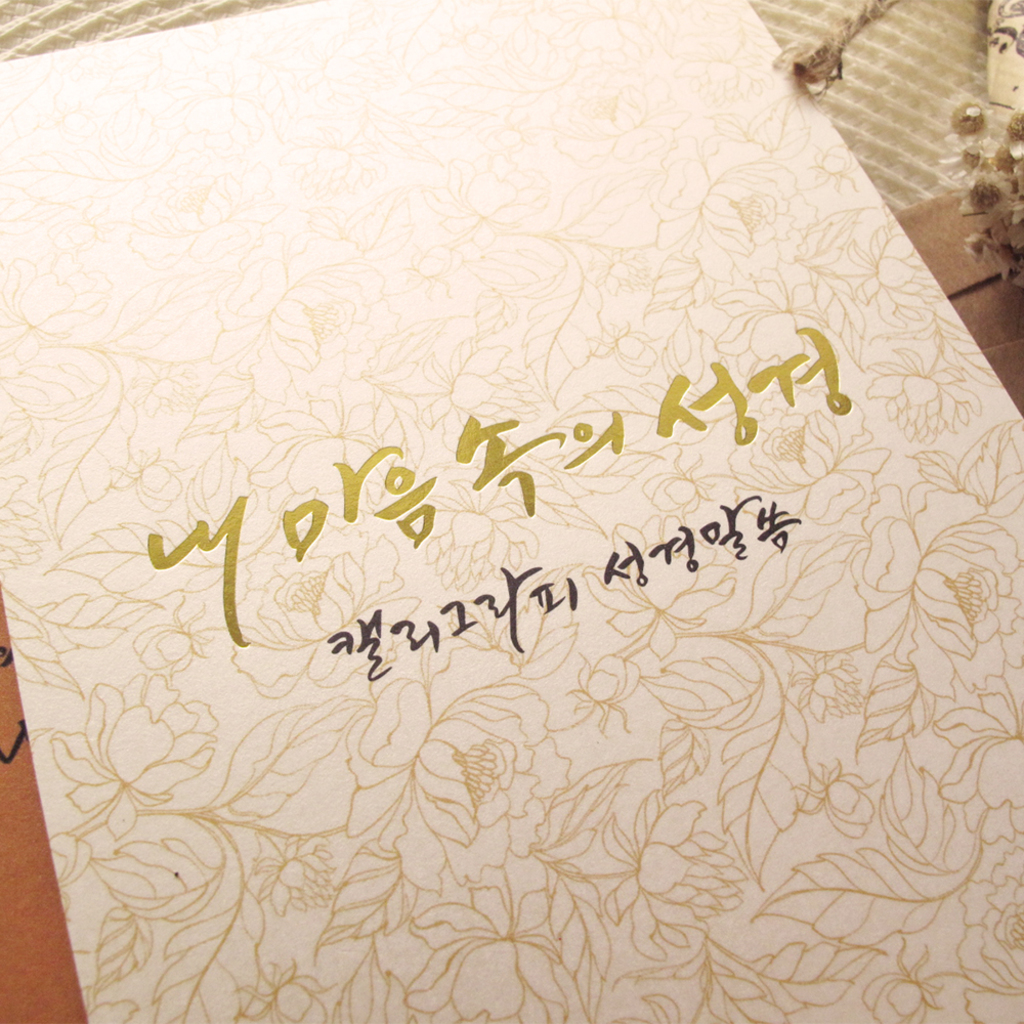 내 마음 속의 성경
캘리그라피 성경말씀